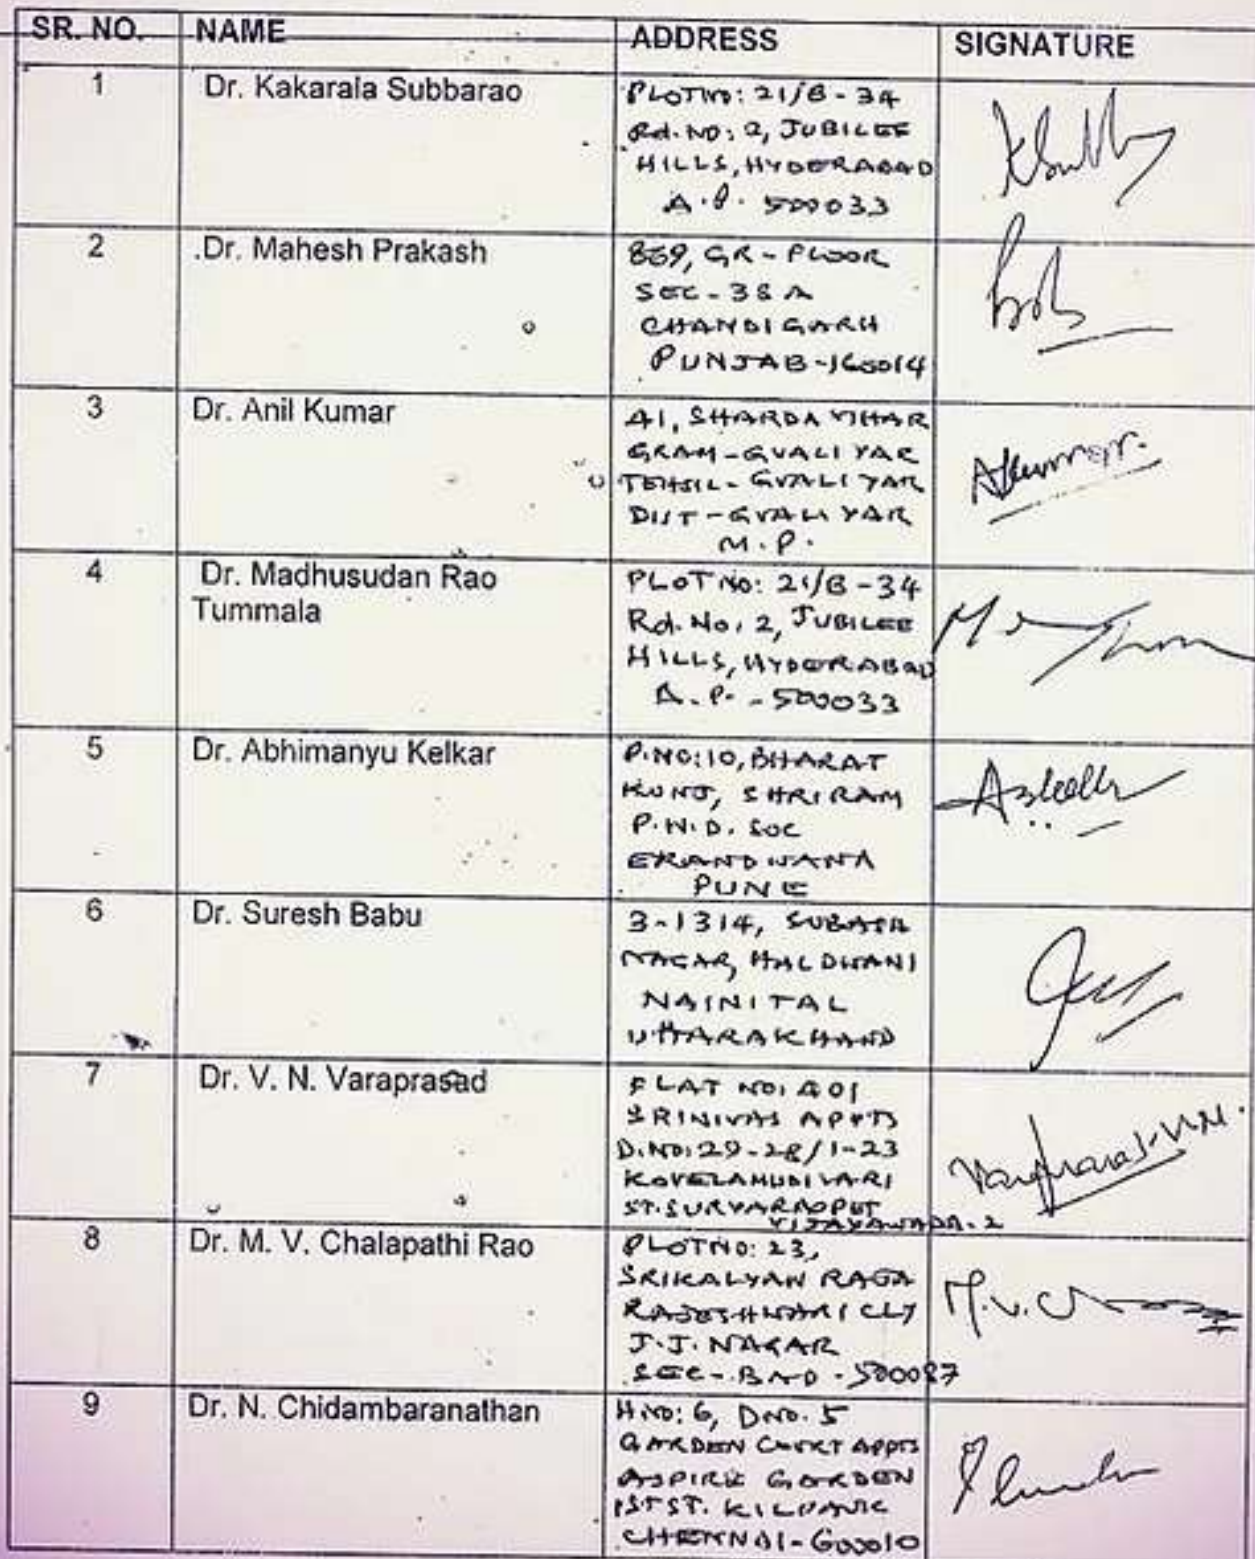 SR. NO. NAME ADDRESS SIGNATURE
1 Dr. Kakarala Subbarao
PLOTNO: 21/B-34
Rd. NO: 2, JUBILEE
HILLS, HYDERABAD
A.P. 500033
2 .Dr. Mahesh Prakash
869, GR-FLOOR
SEC-38A
CHANDIGARH
PUNJAB-160014
3 Dr. Anil Kumar
41, SHARDA VIHAR
GRAM-GVALIYAR
TEHSIL-GVALIYAR
DIST-GVALIYAR
M.P.
Akumar.
4 Dr. Madhusudan Rao
Tummala
PLOT NO: 21/B-34
Rd. No: 2, JUBILEE
HILLS, HYDERABAD
A.P.-500033
5 Dr. Abhimanyu Kelkar
P.NO:10, BHARAT
KUNJ, SHRIRAM
P.N.D. SOC
ERANDWANA
PUNE
6 Dr. Suresh Babu
3-1314, SUBASH
NAGAR, HALDWANI
NAINITAL
UTTARAKHAND
7 Dr. V. N. Varaprasad
FLAT NO: 401
SRINIVAS APPTS
D.NO:29-28/1-23
KOVELAMUDIVARI
ST. SURYARAOPET
VIJAYAWADA-2
Varaprasad.V.N.
8 Dr. M. V. Chalapathi Rao
PLOTNO: 23,
SRIKALYAN RAGA
RAJESHWARI CLY
J.J. NAGAR
SEC-BAD-500087
M.V.C
9 Dr. N. Chidambaranathan
H.NO: 6, DNO. 5
GARDEN COURT APPTS
ASPIRE GARDEN
1ST ST. KILPAUK
CHENNAI-600010